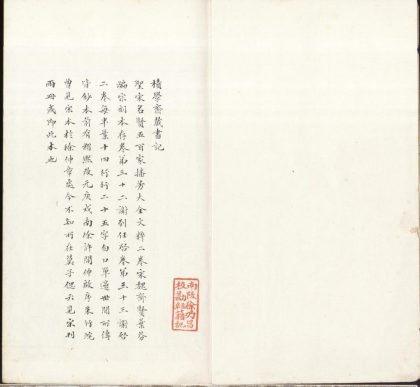 積學齋藏書記
聖宋名賢五百家播芳大全文粹二卷宋魏齊賢葉芬
編宗刻本存卷第三十二謝到任啓卷第五十三謝啓
二卷每半葉十四行行二十五字白口單邊世間所傳
皆鈔本前有紹熙改元庚戌南徐許開仲啟序朱竹垞
曾見宋本於徐仲章處今不知所在莫子偲亦見宋刊
兩册或即此本也
南陵徐乃昌
校勘經籍記